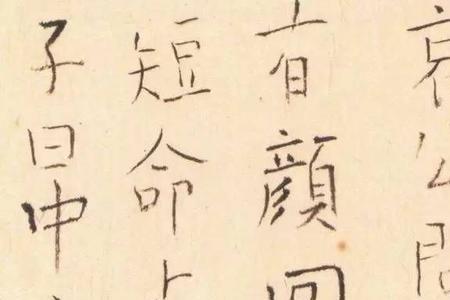 哀公問
有顔回
短命
子曰中